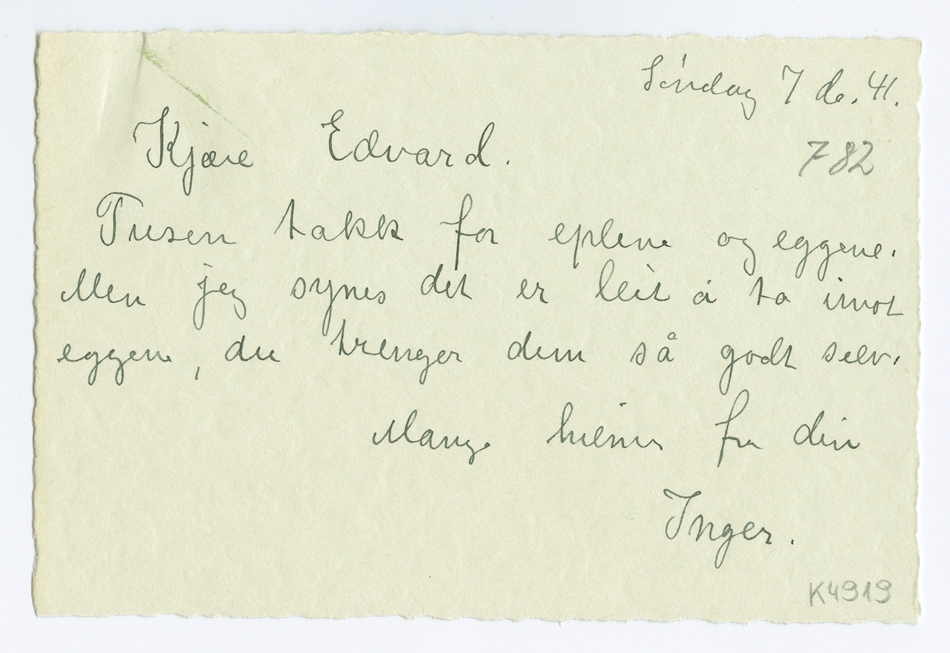 Søndag 7 de. 41.
Kjære Edvard.
782
Tusen takk for eplene og eggene.
Men jeg synes det er leit å ta imot
eggene, du trenger dem så godt selv.
Mange hilsner fra din
Inger.
K4919